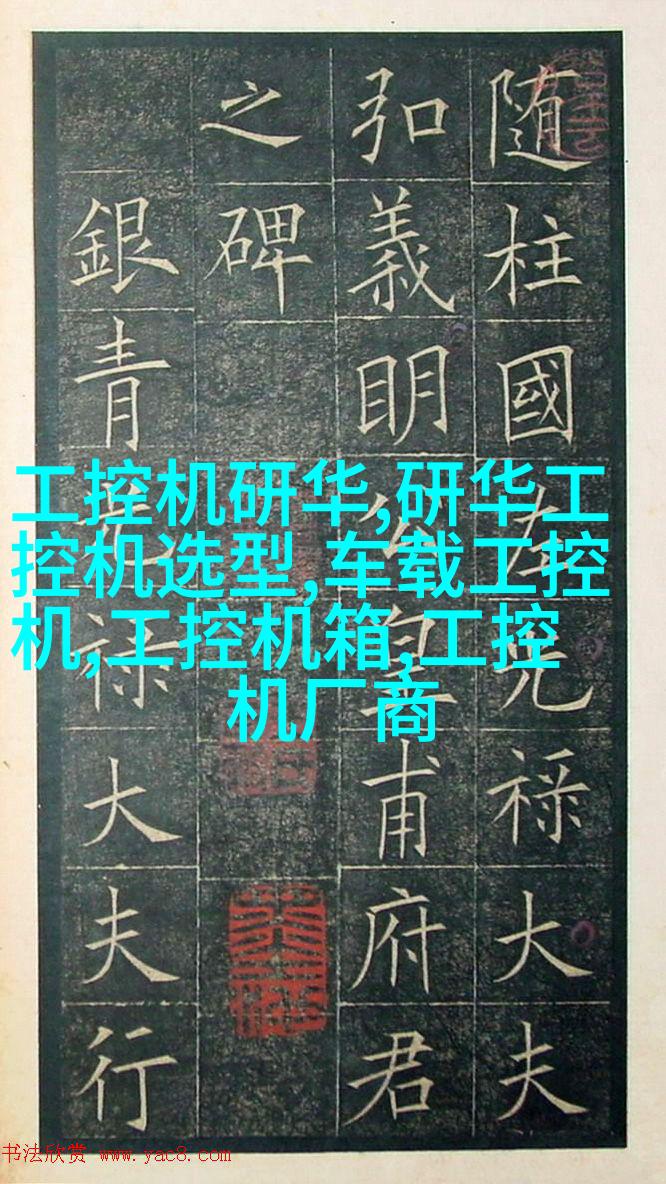 随柱國左光禄大夫
弘義明公皇甫府君
之碑
銀青光禄大夫行
工控机研华,研华工
控机选型,车载工控
机,工控机箱,工控
机厂商
书法欣赏 www.yac8.com